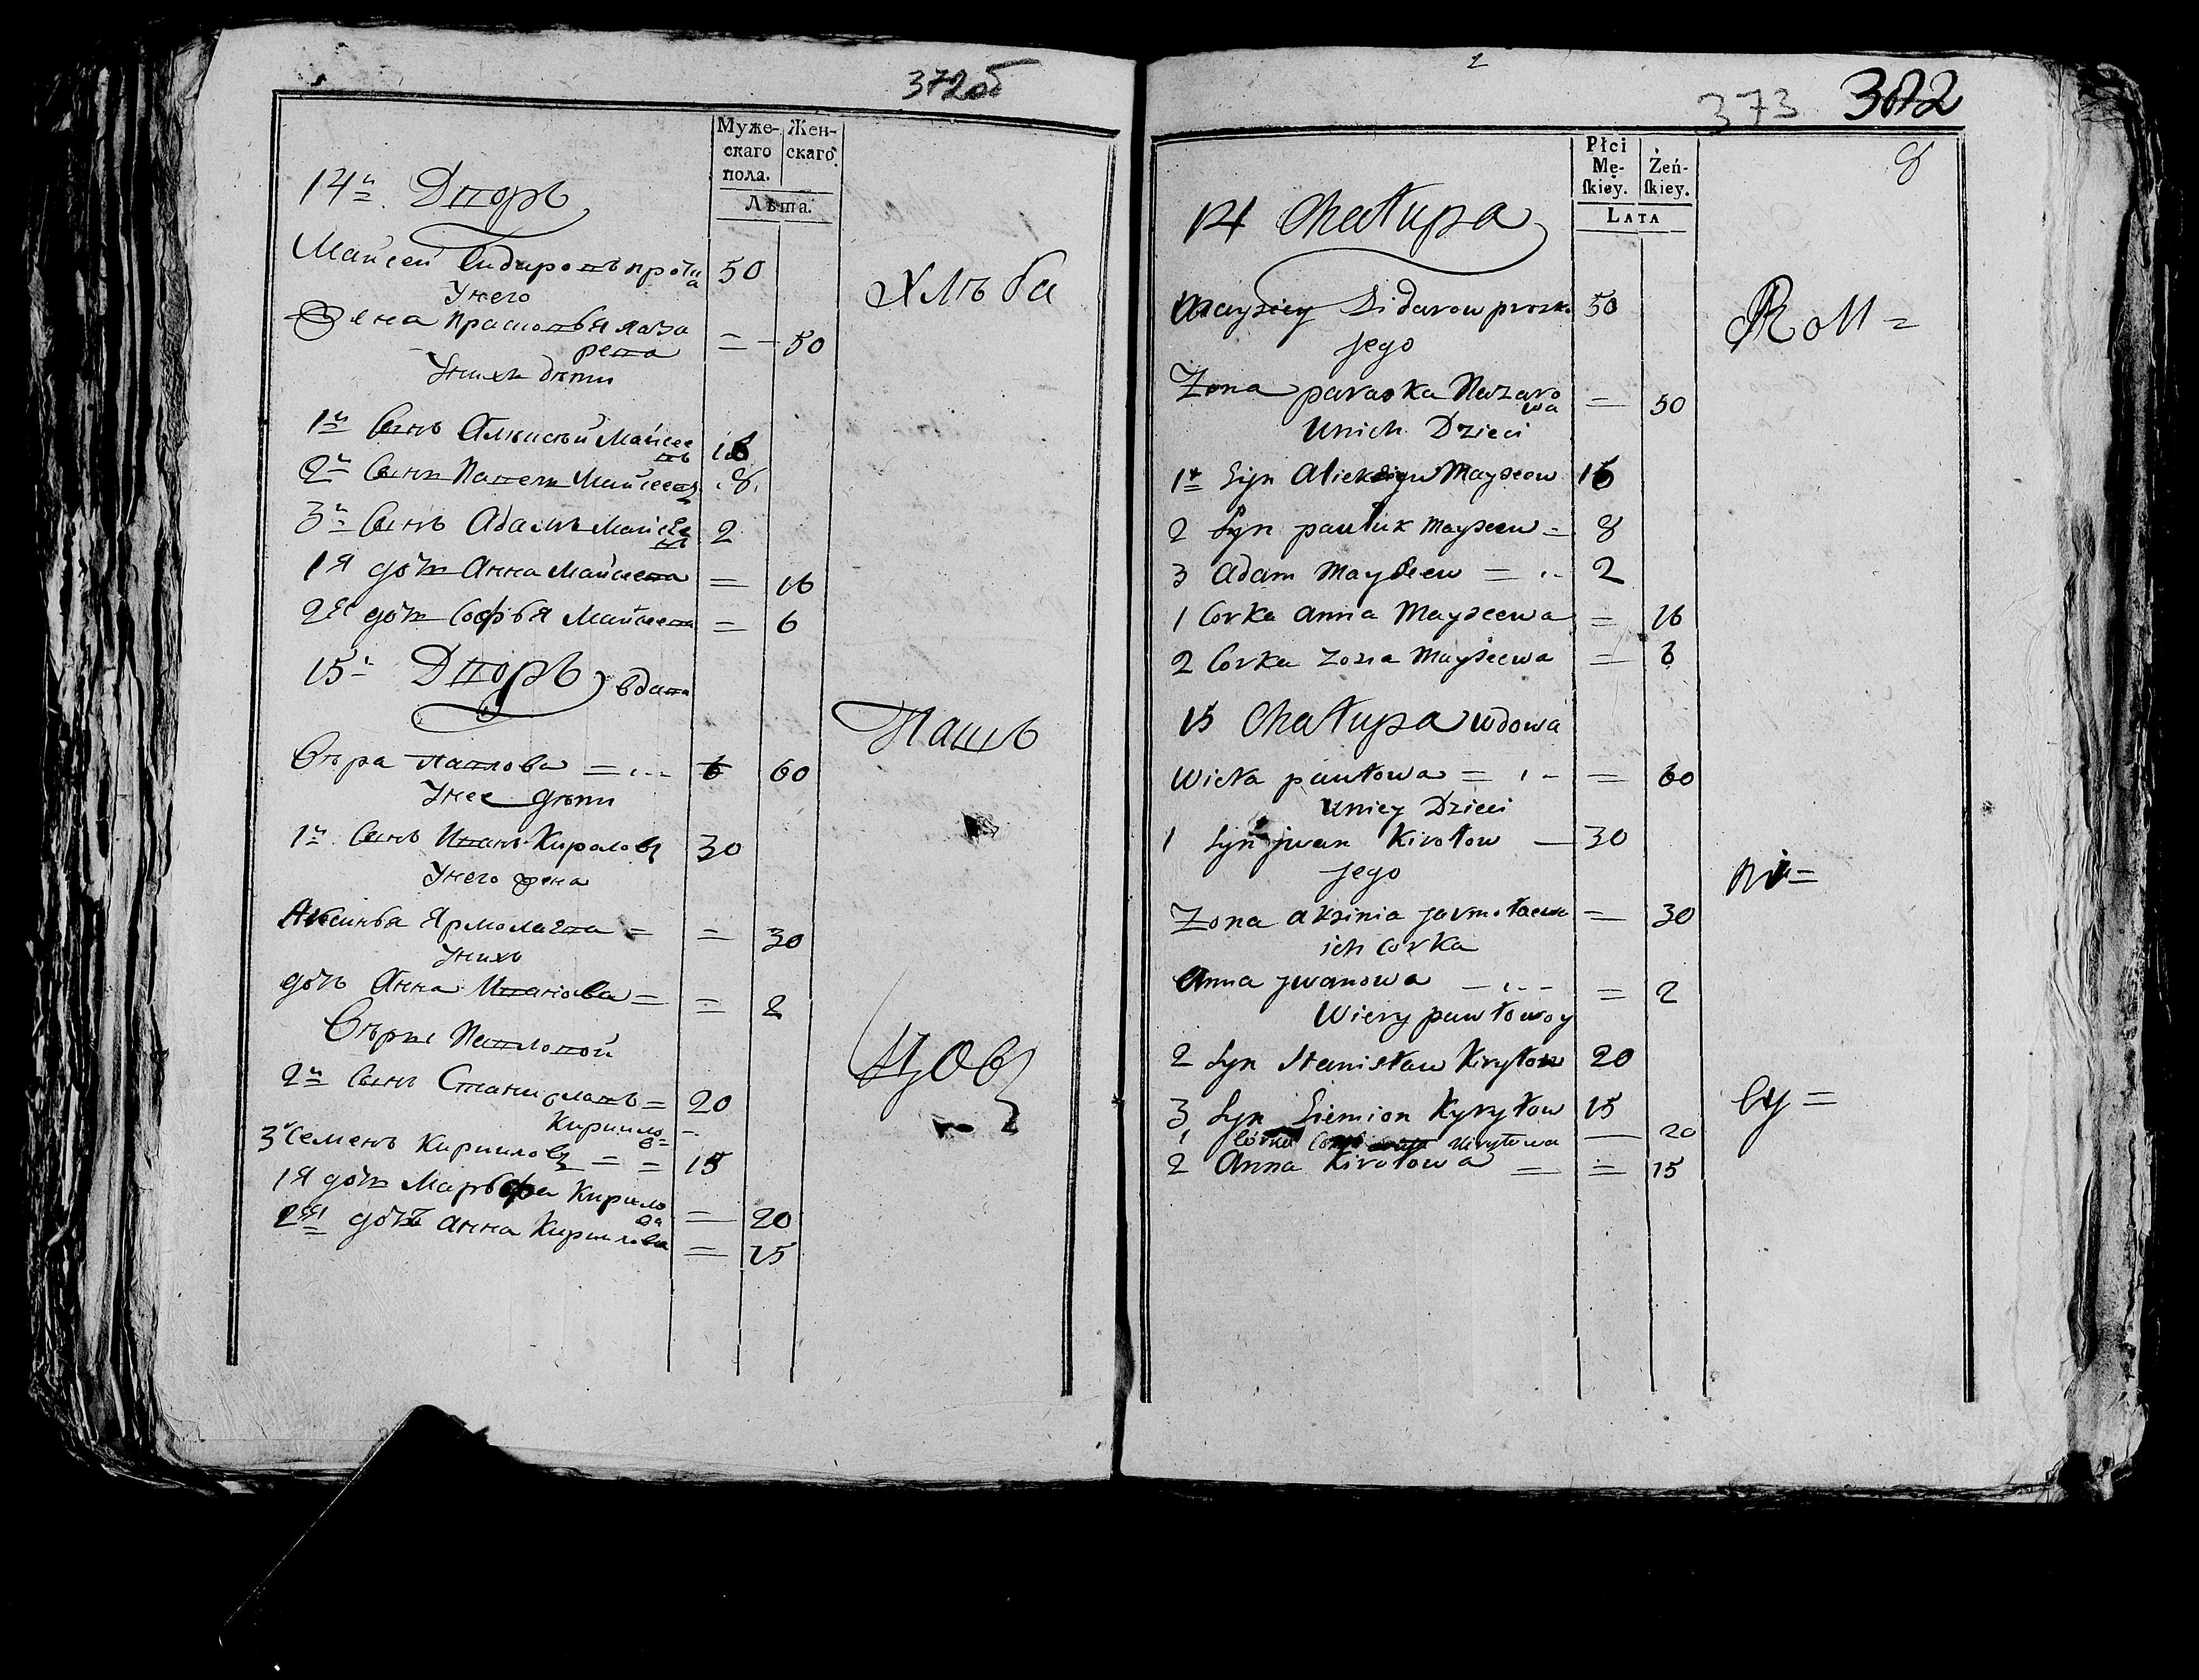 372об
Муже-
скаго
пола.
Жен-
скаго.
Лѣта.
14й Дворъ
Майсей Сидоровъ 50
Унего
Жена Прасковья Наза
рева = 50
Унихъ дѣти
1й Сынъ Алексѣй Майсее
въ 16
2й Сынъ Павелъ Майсеевъ 8
3й Сынъ Адамъ Майсее
въ 2
1я дочь Анна Майсеева = 16
2я дочь Софья Майсеева = 6
15й Дворъ вдова
Вѣра Павлова = 60
Унее дѣти
1й Сынъ Иванъ Кириловъ 30
Унего жена
Аксинья Ярмолаева = = 30
Унихъ
дочь Анна Иванова = = 2
Вѣры Павловой
2й Сынъ Станиславъ = 20
Кирило
въ
3й Семенъ Кириловъ = = 15
1я дочь Марьфа Кирило
ва = 20
2я дочь Анна Кирилова = 15
Хлѣба
Паш
цовъ
2
373 372
8
Płci
Mę-
skiey.
Żeń-
skiey.
LATA
14 Chałupa
Maysiey Sidarow 50
jego
Zona paraska Nazaro
wa = 50
Unich Dzieci
1 Syn Aleksiey Mayseew 16
2 Syn pauluk Mayseew = 8
3 Adam Mayseew = 2
1 Corka Anna Mayseewa = 16
2 Corka Zosia Mayseewa = 6
15 Chałupa wdowa
Wiera pawłowa = = 60
Uniey Dzieci
1 Syn jwan Kirołow — 30
jego
Zona aksinia jarmołaewa = 30
ich Corka
Anna jwanowa = 2
Wiery pawłowoy
2 Syn Stanisław Kiryłow 20
3 Syn Siemion Kyryłow 15
1 Córka Kiryłowa — 20
2 Anna Kirołowa = = 15
Roll =
ni =
cy =